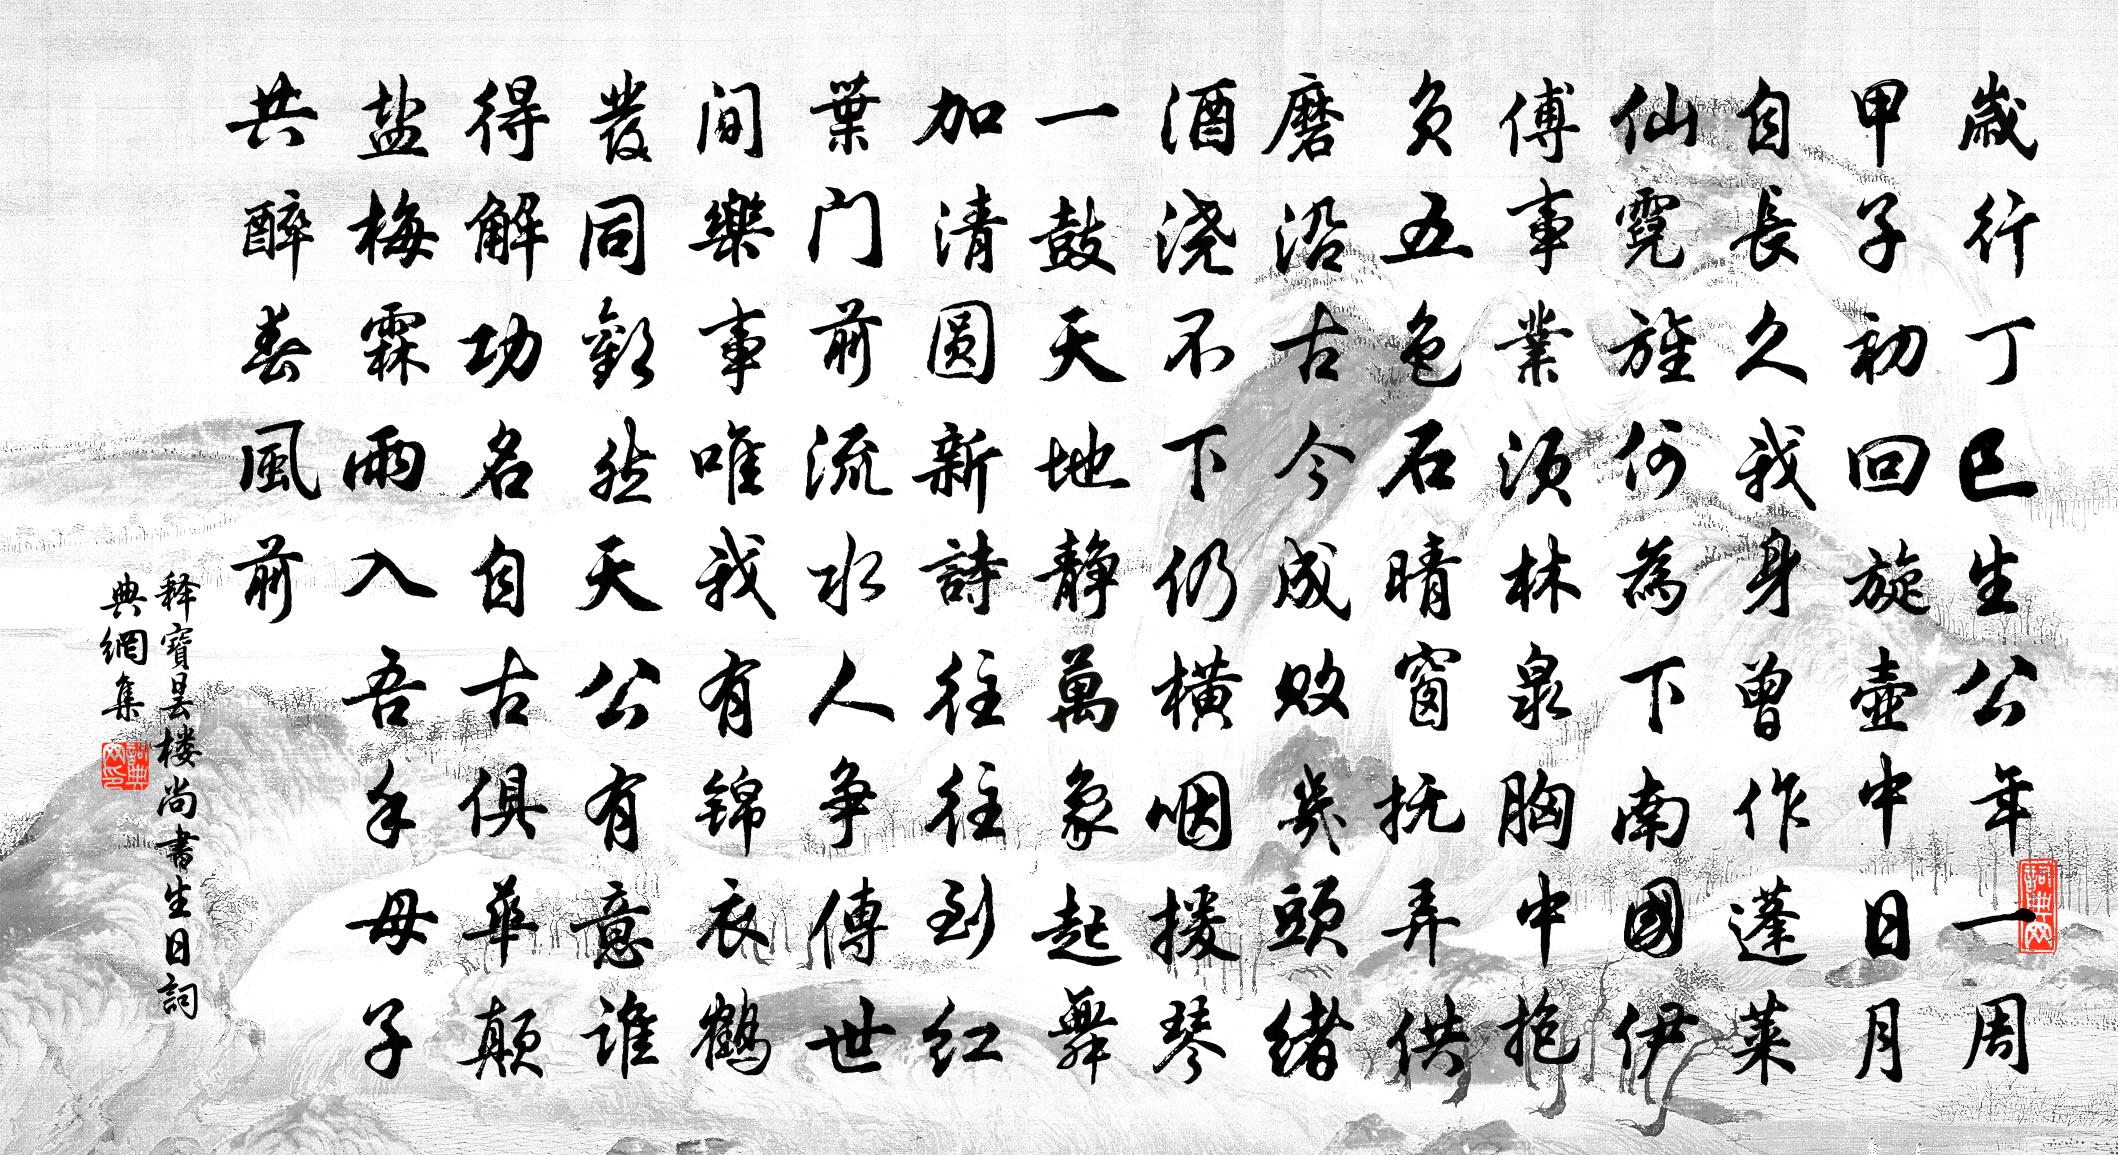 歲行丁巳生公年一周
甲子初回旋壺中日月
自長久我身曾作蓬萊
仙霓旌何為下南國伊
傅事業須林泉胸中抱
負五色石晴窗抚弄供
磨沿古今成敗幾頭緒
酒浇不下仍橫咽援琴
一鼓天地静萬象起舞
加清圓新詩往往到红
葉门前流水人争傳世
间樂事唯我有锦衣鶴
發同歡然天公有意誰
得解功名自古俱華顛
盐梅霖雨入吾手母子
共醉春風前
释寶昙楼尚書生日詞
典網集
詞典网
詞典网印